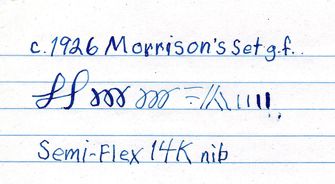 c. 1926 Morrison's Set g.f.
Semi-Flex 14K nib